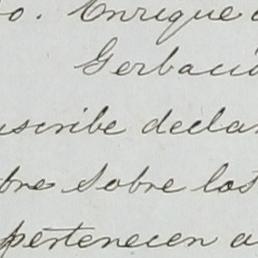 o. Enrique
Gerbacio
uscribe decla
bre sobre los
pertenecen a